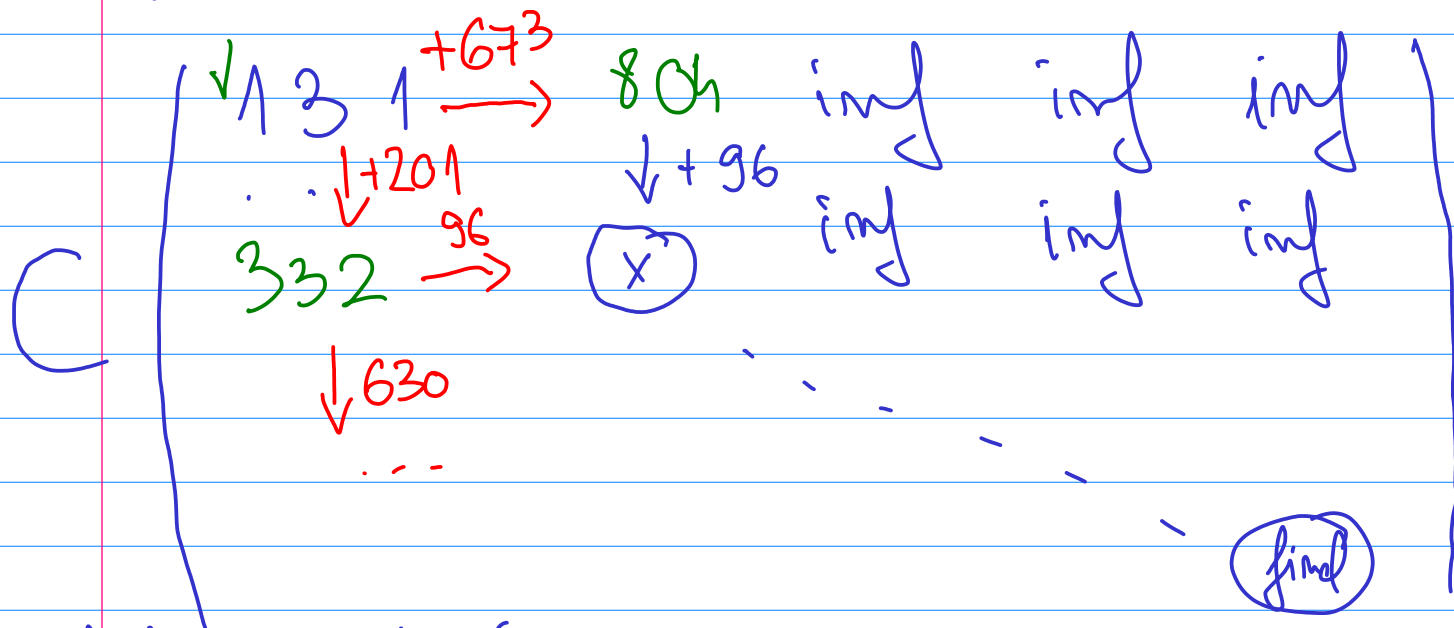 +673
131 → 804 inf inf inf
↓ +201 ↓ + 96
332 → 96 x inf inf inf
C
↓ 630
...
find